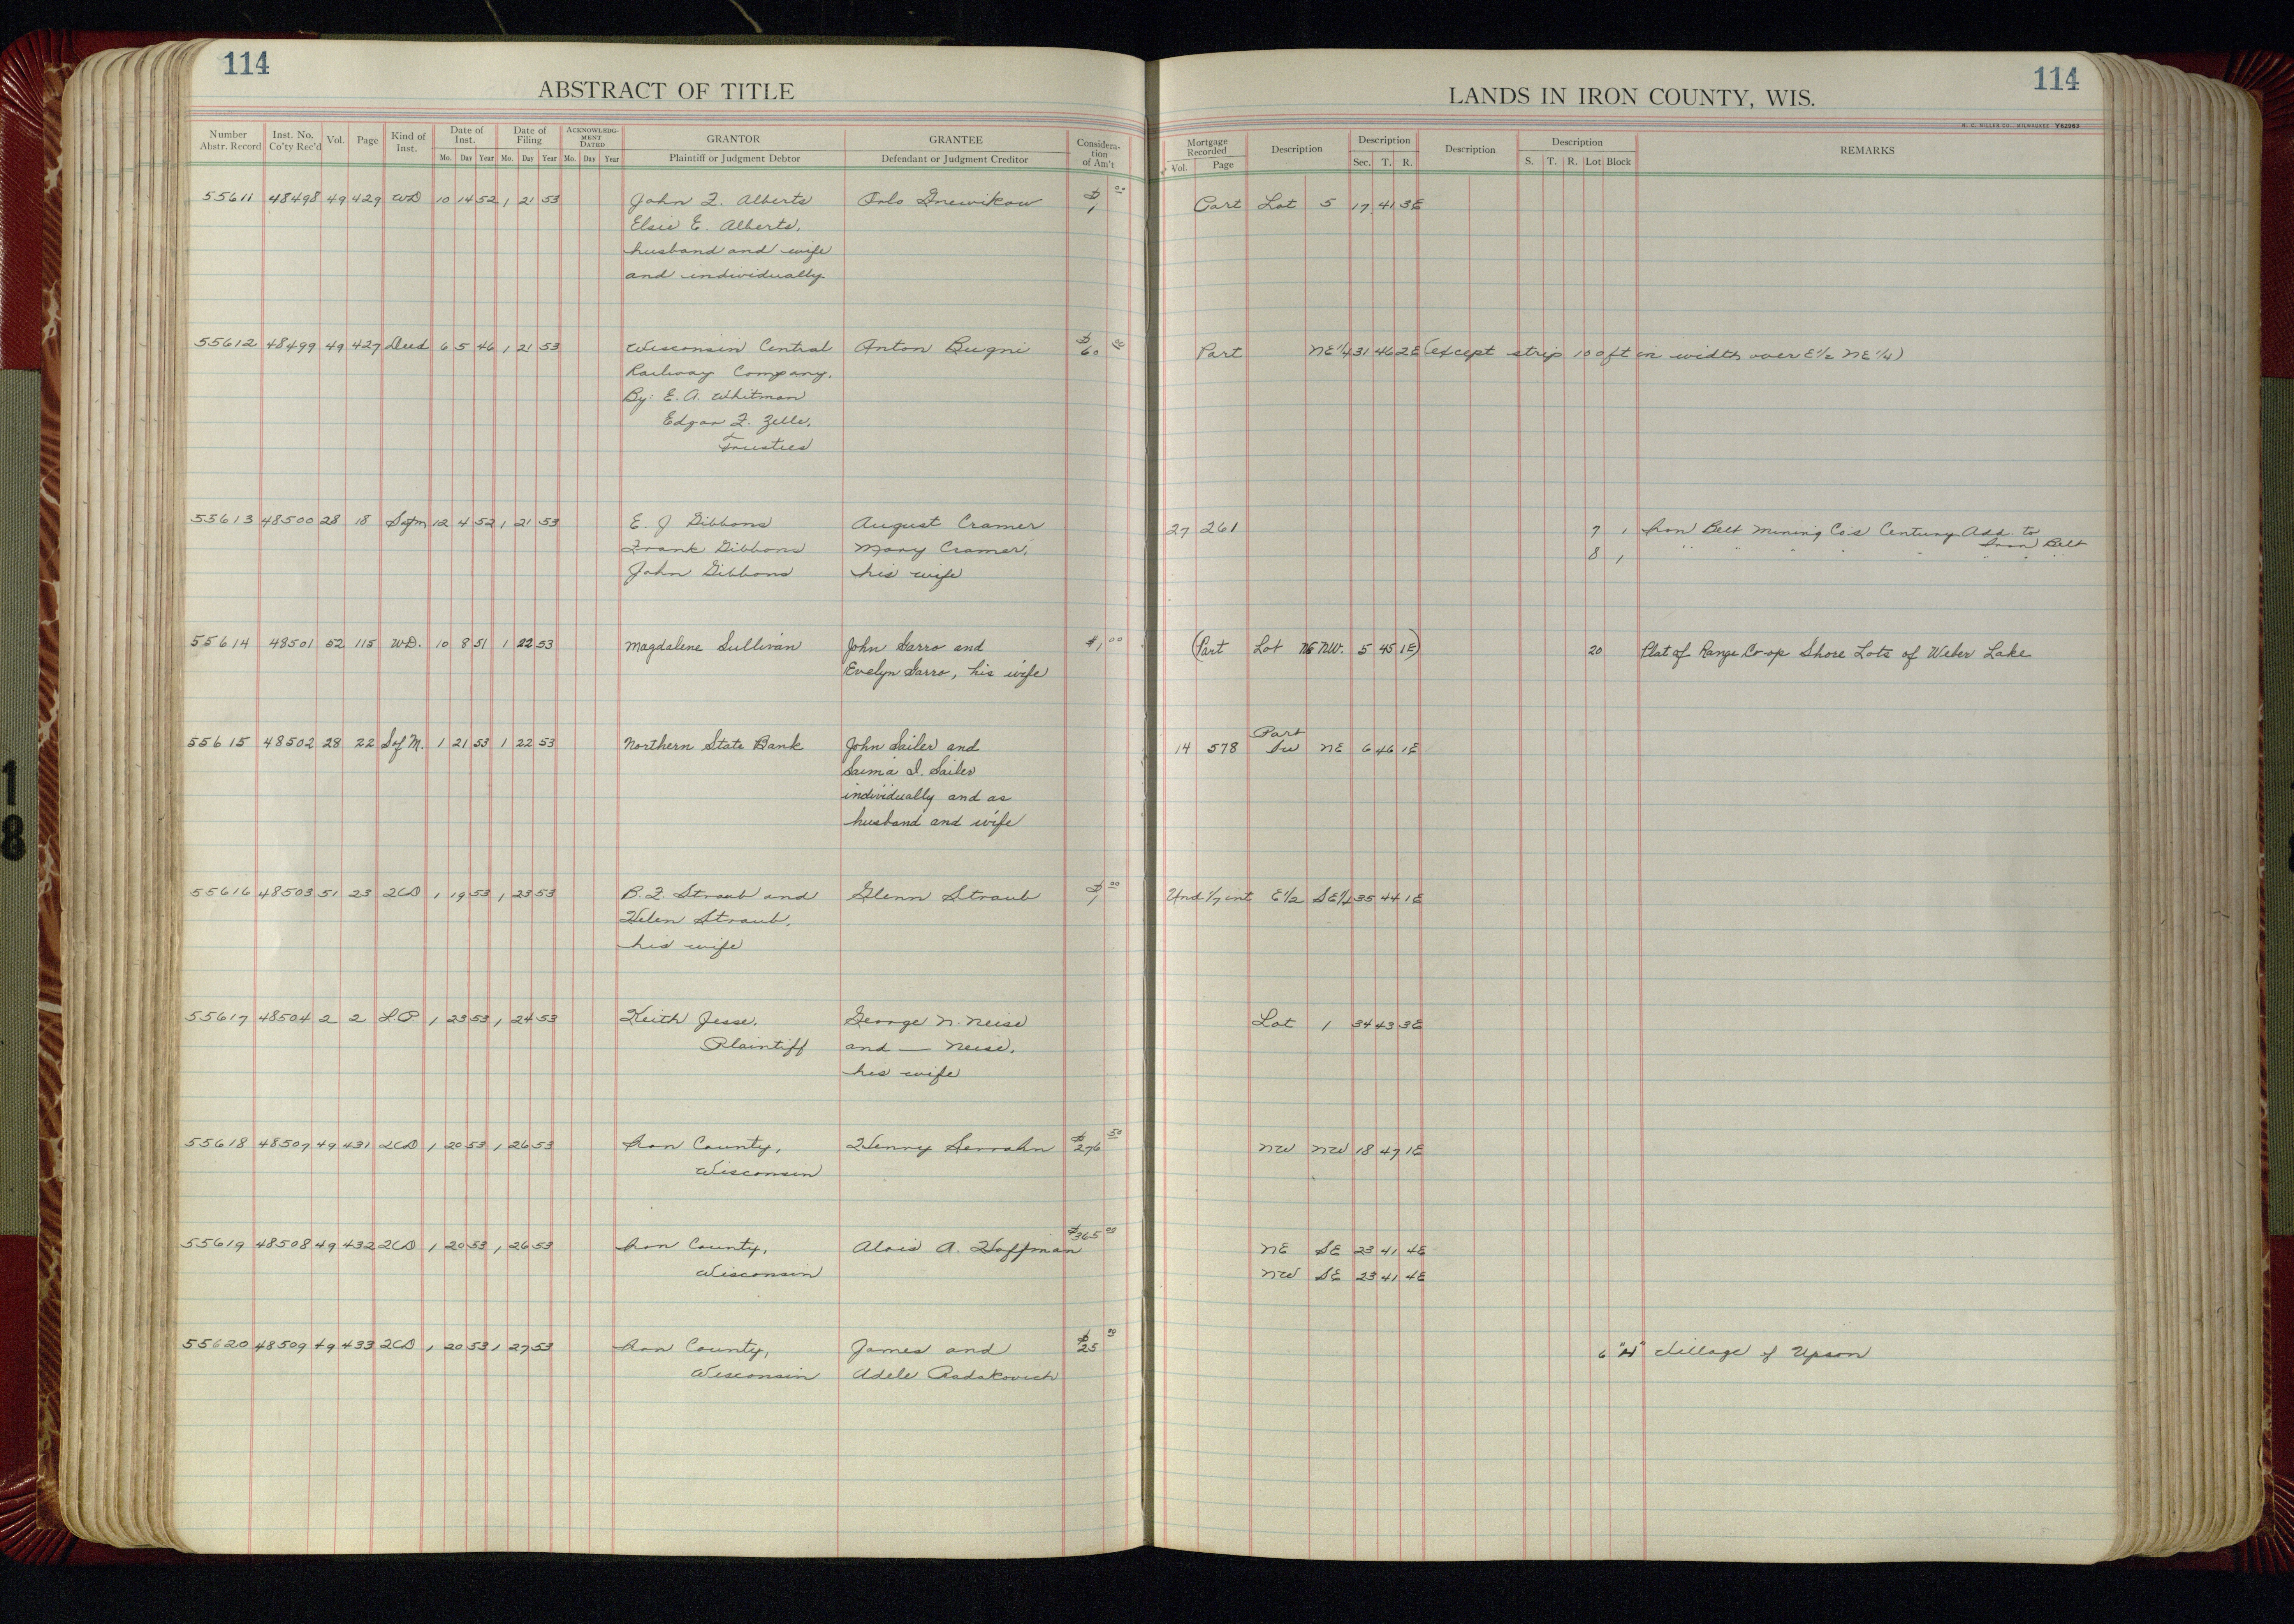 114
ABSTRACT OF TITLE
Number Abstr. Record Inst. No. Co'ty Rec'd Vol. Page Kind of Inst. Date of Inst. Mo. Day Year Date of Filing Mo. Day Year ACKNOWLEDGMENT DATED Mo. Day Year GRANTOR Plaintiff or Judgment Debtor GRANTEE Defendant or Judgment Creditor Consideration of Am't
55611 48498 49 429 WD 10 14 52 1 21 53 John F. Alberts $1 00
Elsie E. Alberts,
husband and wife
and individually
55612 48499 49 427 Deed 6 5 46 1 21 53 Wisconsin Central Anton Bugni $60 00
Railway Company,
By: E. A. Whitman
Edgar F. Zelle,
Trustees
55613 48500 28 18 Sofm 12 4 52 1 21 53 E. J Gibbons August Cramer
Frank Gibbons Mary Cramer,
John Gibbons his wife
55614 48501 52 115 WD. 10 8 51 1 22 53 Magdalene Sullivan John Sarro and $1 00
Evelyn Sarro, his wife
55615 48502 28 22 Sof M. 1 21 53 1 22 53 Northern State Bank John Sailer and
Saima I. Sailer
individually and as
husband and wife
55616 48503 51 23 2CD 1 19 53 1 23 53 B. F. Straub and Glenn Straub $1 00
Helen Straub,
his wife
55617 48504 2 2 L.P. 1 23 53 1 24 53 Keith Jesse, George N. Neise
Plaintiff and — Neise,
his wife
55618 48507 49 431 2CD 1 20 53 1 26 53 Iron County, Henry Serrahn $276 50
Wisconsin
55619 48508 49 432 2CD 1 20 53 1 26 53 Iron County, Alois A. Hoffman $365 00
Wisconsin
55620 48509 49 433 2CD 1 20 53 1 27 53 Iron County, James and $25 00
Wisconsin Adele Radakovich
114
LANDS IN IRON COUNTY, WIS.
H. C. MILLER CO., MILWAUKEE Y62983
Mortgage Recorded Vol. Page Description Description Sec. T. R. Description Description S. T. R. Lot Block REMARKS
Part Lot 5 17 41 3E
Part NE 1/4 31 46 2E (except strip 100 ft in width over E1/2 NE 1/4)
27 261 7 1 Iron Belt Mining Co's Century Add. to
Iron Belt
8 1 " " " " " " "
(Part Lot NE NW. 5 45 1E) 20 Plat of Range Co-op Shore Lots of Weber Lake
Part
14 578 SW NE 6 46 1E
Und 1/7 int E1/2 SE1/4 35 44 1E
Lot 1 34 43 3E
NW NW 18 47 1E
NE SE 23 41 4E
NW SE 23 41 4E
6 "H" Village of Upson
18